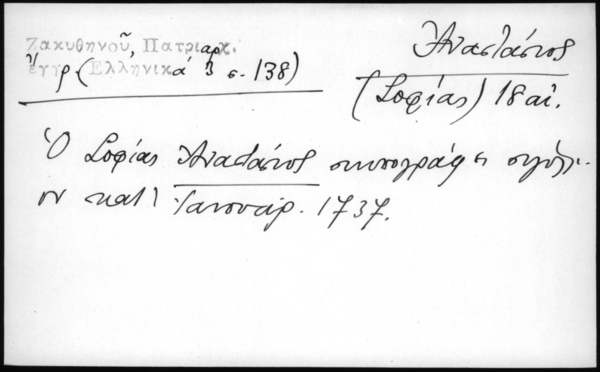 Ζακυθηνοῦ, Πατριαρχ.
ἔγγρ. (Ἑλληνικά 3 σ. 138)
Ἀναστάσιος
(Σοφίας) 18 αἰ.
Ὁ Σοφίας Ἀναστάσιος συνυπογράφει σιγίλλι-
ον κατὰ Ἰανουάρ. 1737.